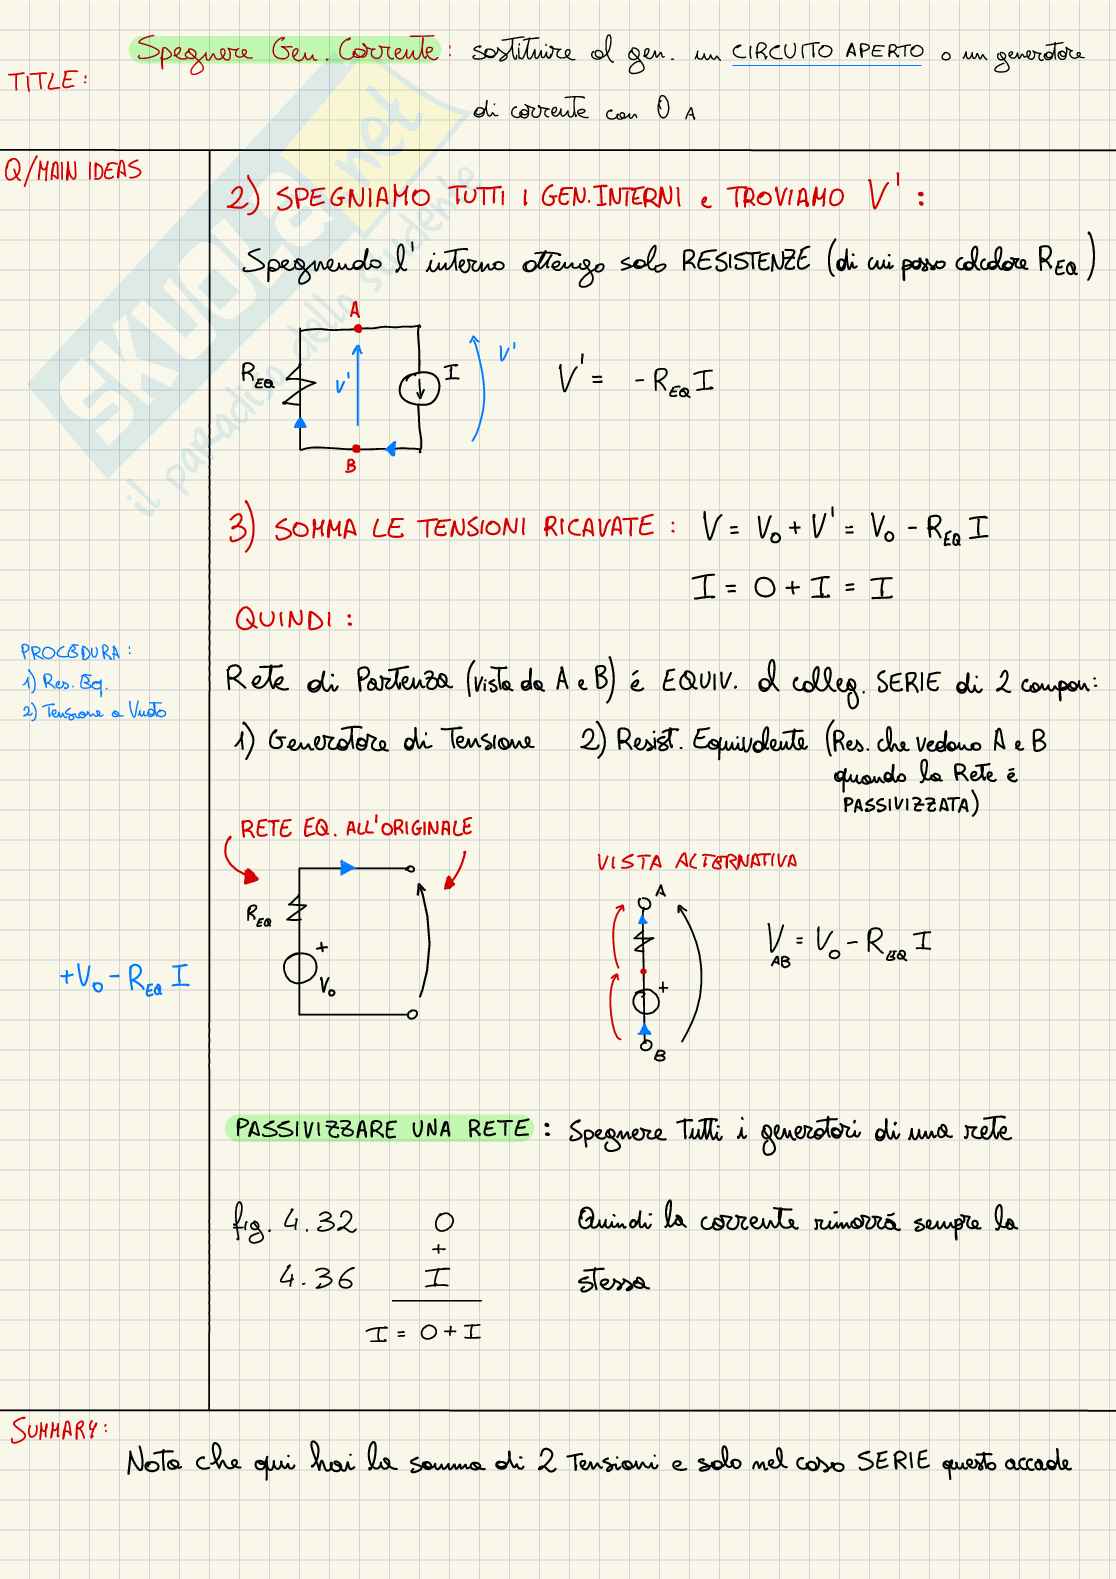 Spegnere Gen. Corrente: sostituire al gen. un CIRCUITO APERTO o un generatore
TITLE:
di corrente con 0 A
Q/MAIN IDEAS
2) SPEGNIAMO TUTTI I GEN. INTERNI e TROVIAMO V' :
Spegnendo l'interno ottengo solo RESISTENZE (di cui posso calcolare REQ)
A
REQ
V'
I
V'
V' = -REQ I
B
SKUOLA.net
il paradiso dello studente
3) SOMMA LE TENSIONI RICAVATE : V = V0 + V' = V0 - REQ I
I = 0 + I = I
QUINDI :
PROCEDURA :
1) Res. Eq.
2) Tensione a Vuoto
Rete di Partenza (vista da A e B) é EQUIV. al colleg. SERIE di 2 compon:
1) Generatore di Tensione 2) Resist. Equivalente (Res. che vedono A e B
quando la Rete é
PASSIVIZZATA)
RETE EQ. ALL'ORIGINALE
REQ
+
V0
+V0 - REQ I
VISTA ALTERNATIVA
A
+
B
VAB = V0 - REQ I
PASSIVIZZARE UNA RETE : Spegnere Tutti i generatori di una rete
fig. 4.32 0 Quindi la corrente rimarrá sempre la
+
4.36 I stessa
I = 0 + I
SUMMARY:
Nota che qui hai la somma di 2 Tensioni e solo nel caso SERIE questo accade